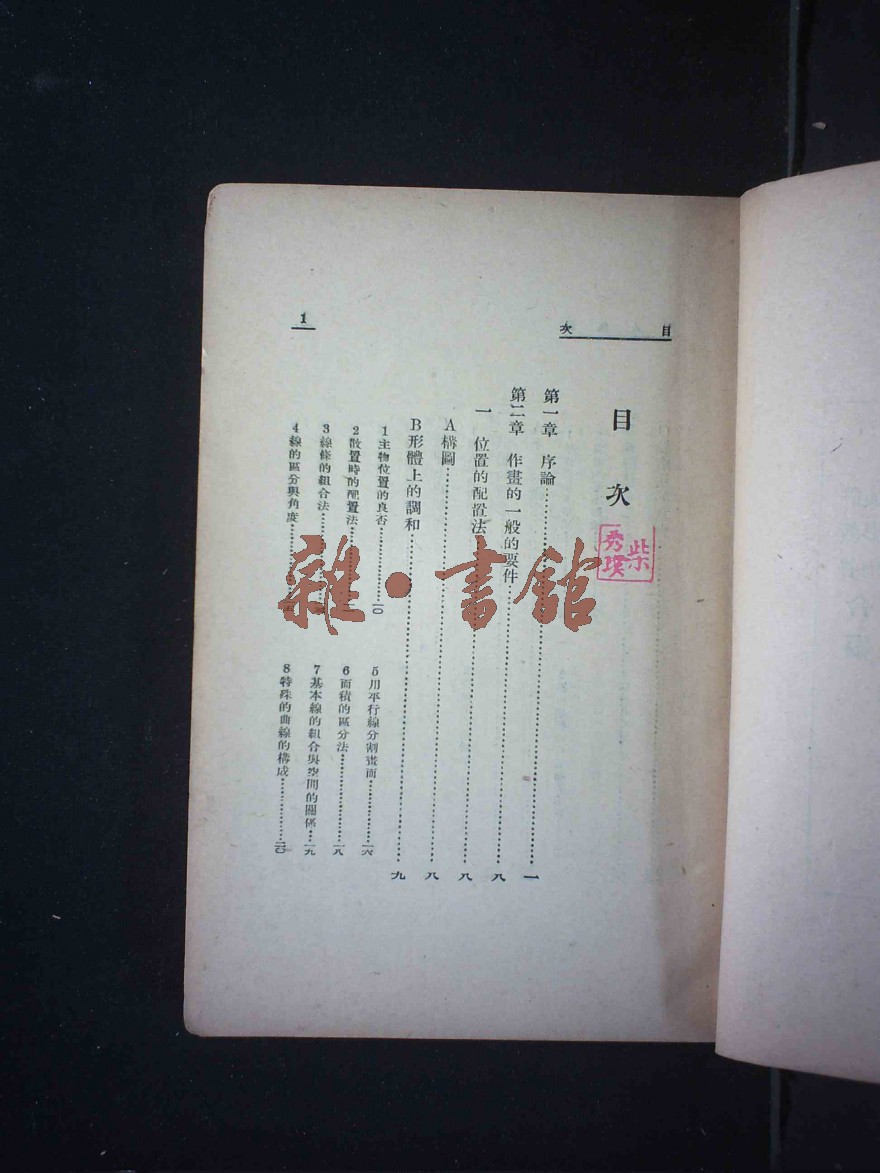 目次
1
目次
第一章 序論……一
第二章 作畫的一般的要件……八
一 位置的配置法……八
A構圖……八
B形體上的調和……九
1主物位置的良否……一〇
2散置時的配置法……
3線條的組合法……
4線的區分與角度……
5用平行線分割畫面……一六
6面積的區分法……一八
7基本線的組合與空間的關係……一九
8特殊的曲線的構成……二〇
柴秀瑛
雜·書館